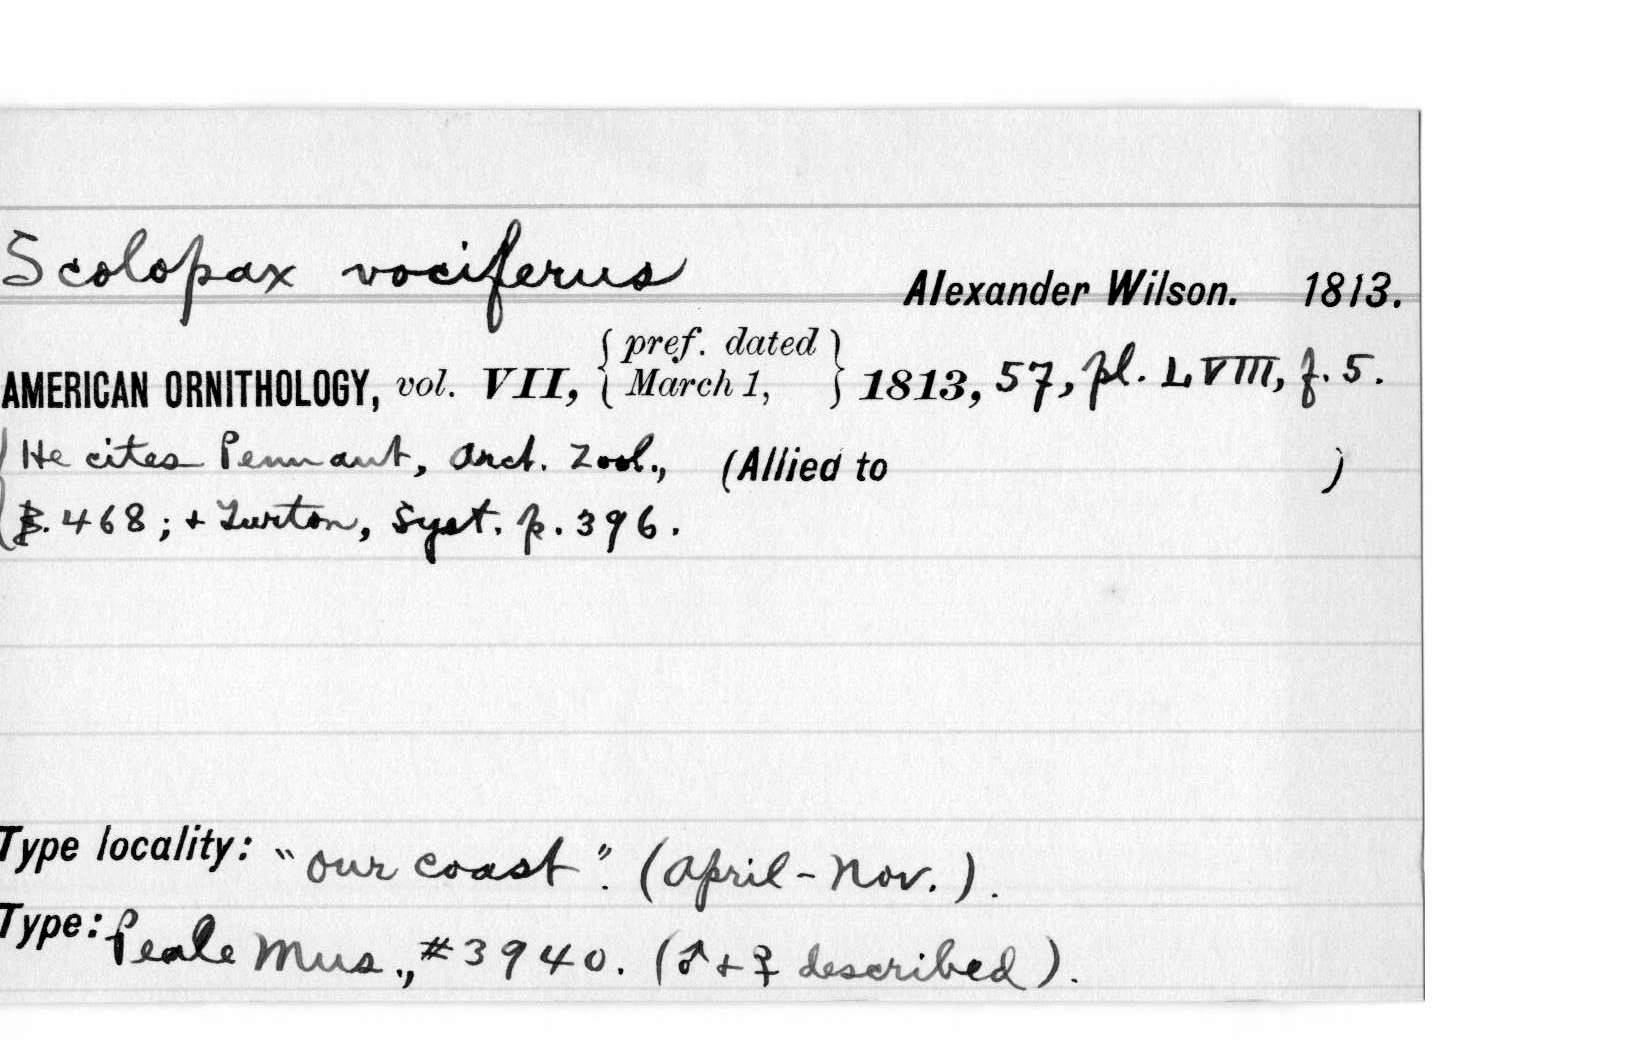 Scolopax vociferus Alexander Wilson. 1813.
AMERICAN ORNITHOLOGY, vol. VII, { pref. dated March 1, } 1813, 57, pl. LVIII, f. 5.
(He cites Pennant, Arct. Zool., (Allied to )
468; + Turton, Syst. p. 396.
Type locality: "our coast". (April - Nov.).
Type: Peale Mus., #3940. (♂ + ♀ described).